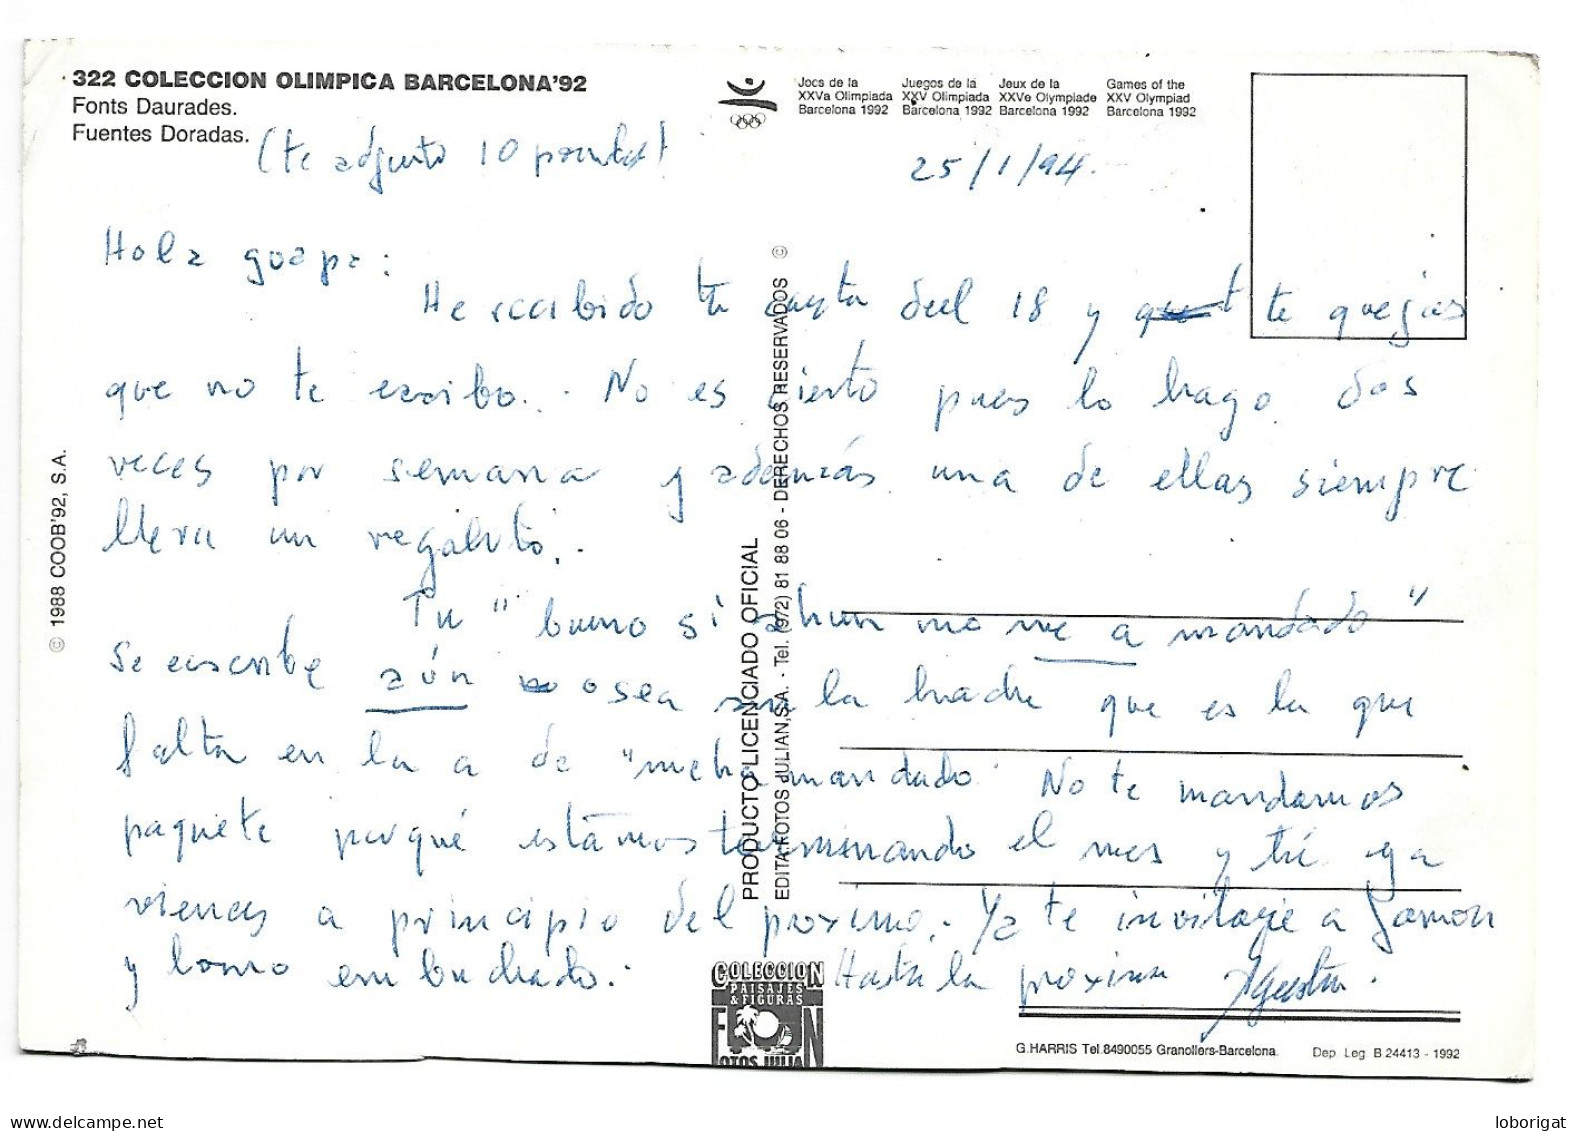 322 COLECCION OLIMPICA BARCELONA'92
Fonts Daurades.
Fuentes Doradas.
Jocs de la
XXVa Olimpiada
Barcelona 1992
Juegos de la
XXV Olimpiada
Barcelona 1992
Jeux de la
XXVe Olympiade
Barcelona 1992
Games of the
XXV Olympiad
Barcelona 1992
(te adjunto 10
25/1/94.
Hola guapa:
He recibido tu carta del 18 y te quejas
que no te escribo. No es cierto pues lo hago dos
veces por semana y además una de ellas siempre
lleva un regalito.
Tu " bueno si ahun no me a mandado "
Se escribe aún o sea sin la hache que es la que
falta en la a de "me ha mandado" No te mandamos
paquete porqué estámos terminando el mes y tú ya
vienes a principio del proximo. Ya te invitaré a Jamon
y lomo embuchado. Hasta la proxima Agustín.
© 1988 COOB'92, S.A.
PRODUCTO LICENCIADO OFICIAL
EDITA: FOTOS JULIAN, S.A. - Tel. (972) 81 88 06 - DERECHOS RESERVADOS ©
COLECCION
PAISAJES
& FIGURAS
FOTOS JULIAN
G.HARRIS Tel.8490055 Granollers-Barcelona.
Dep. Leg. B 24413 - 1992
loborigat